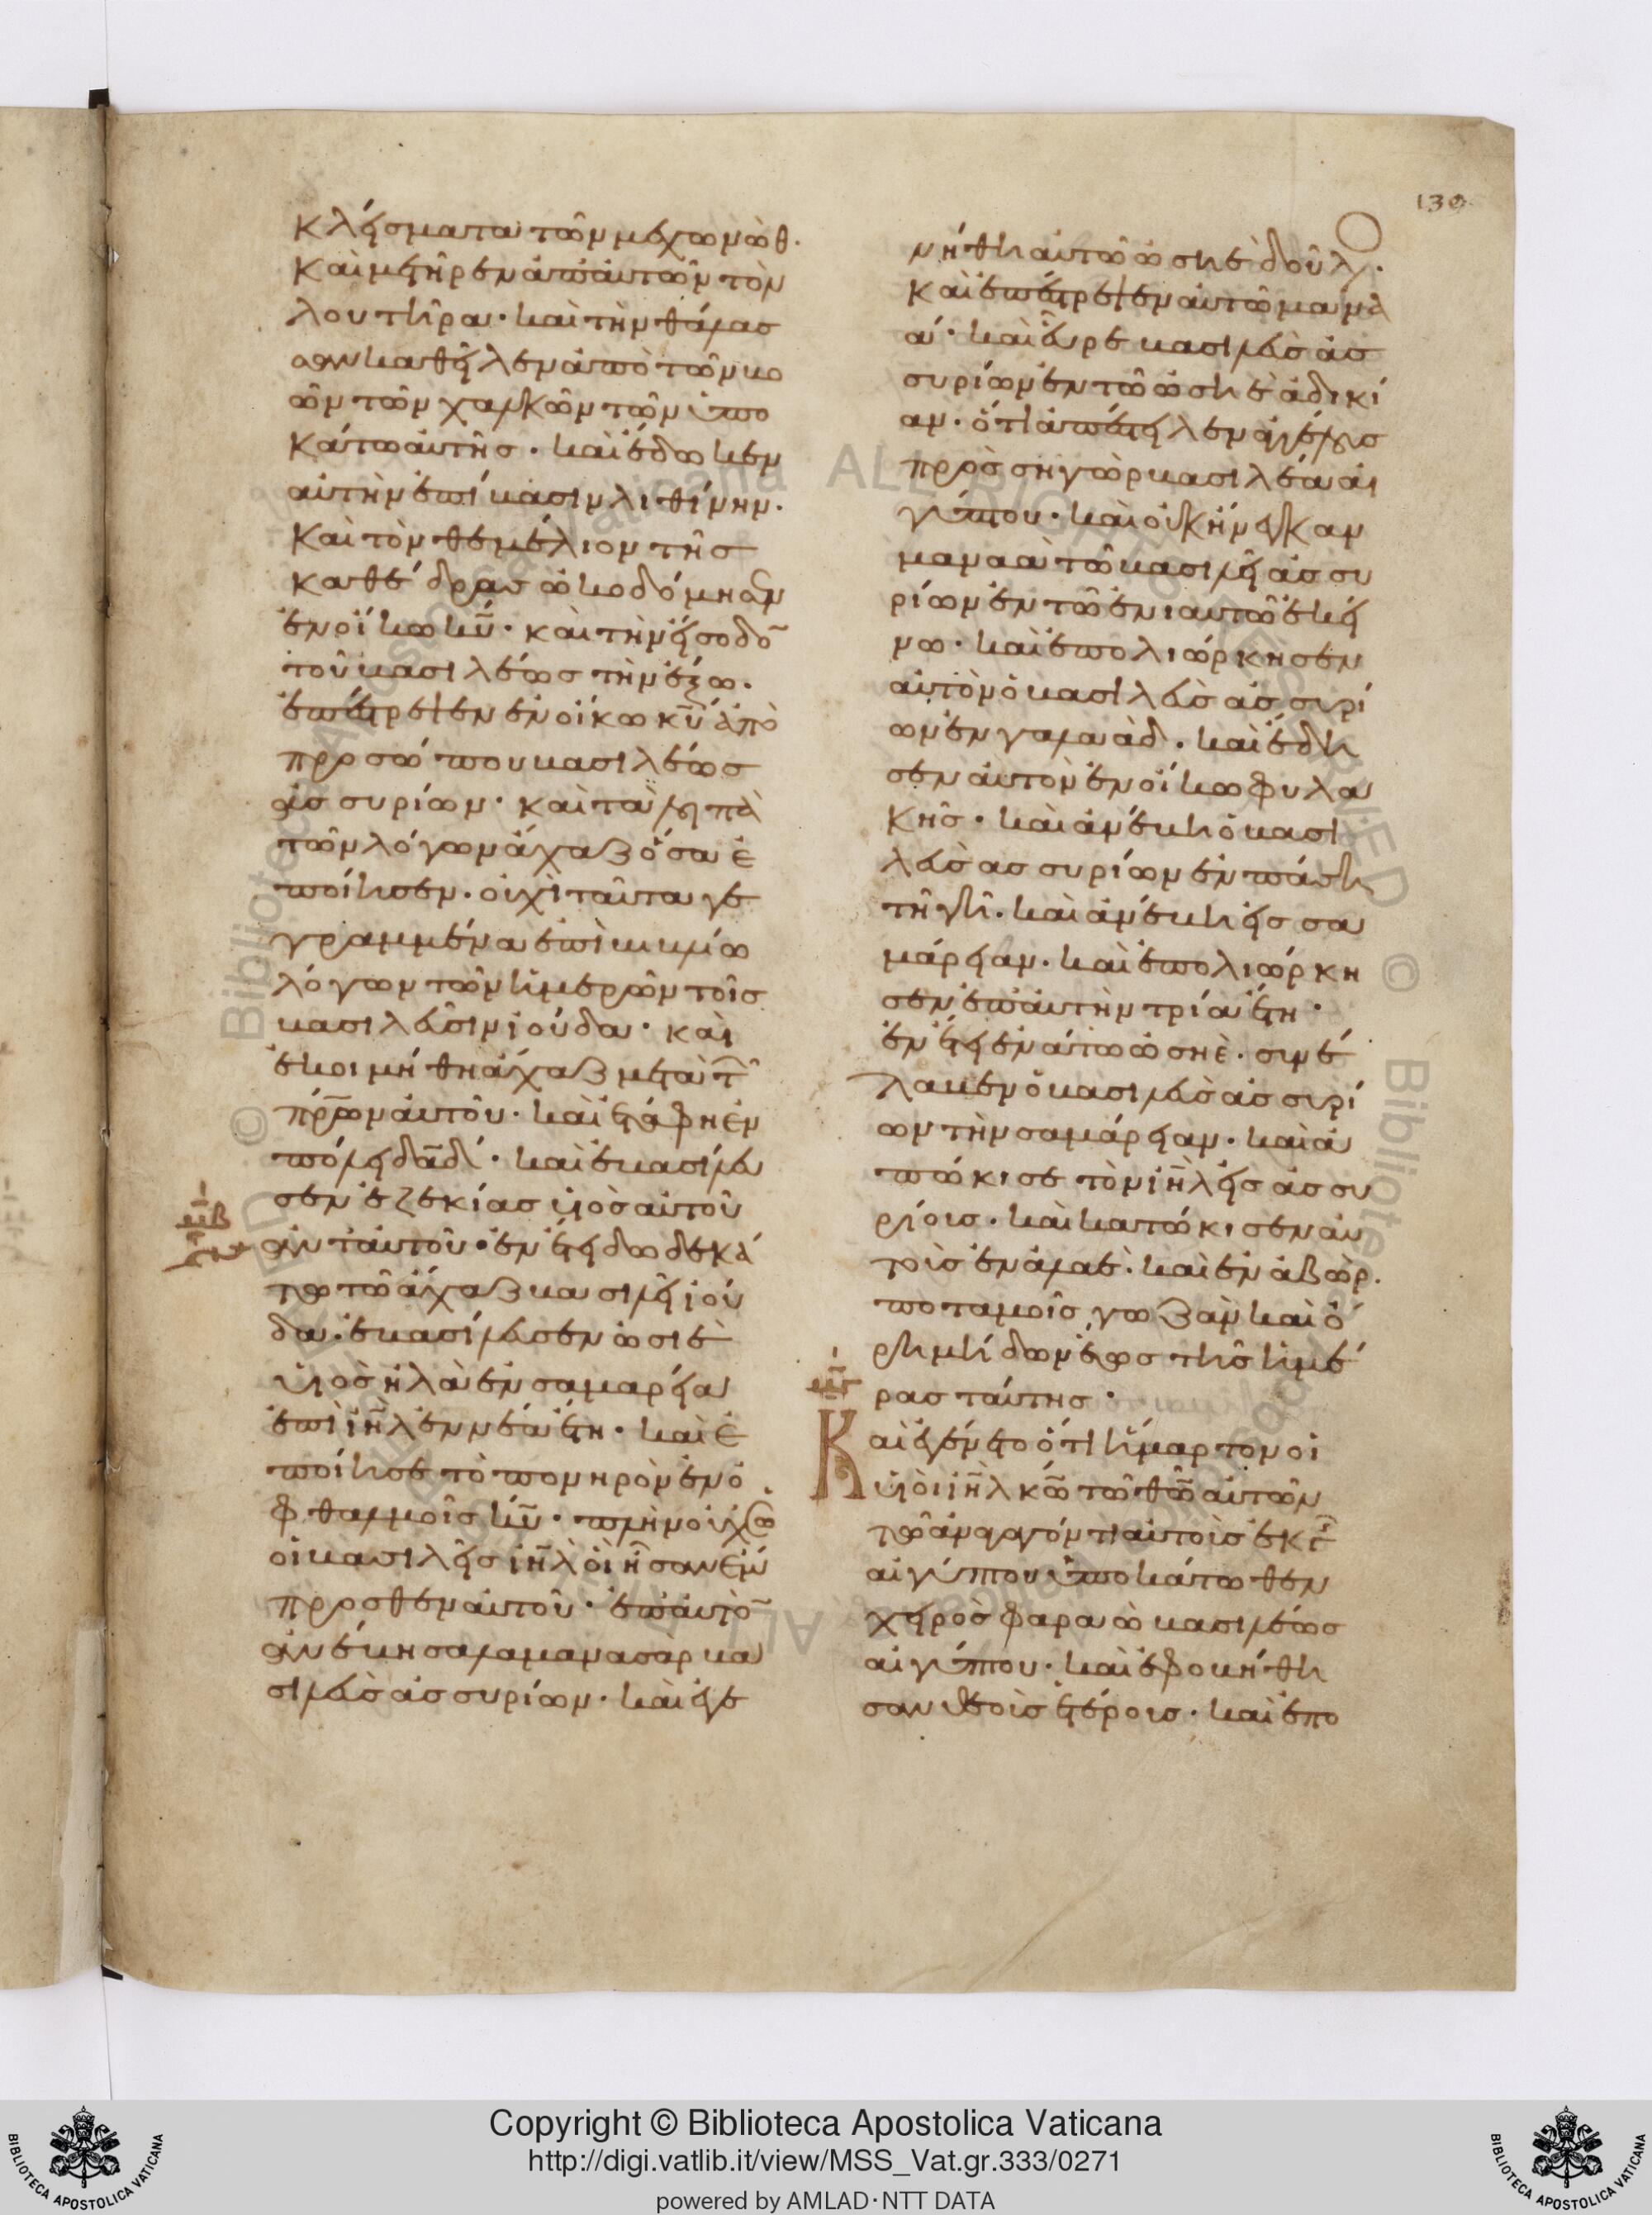 κλείσματα τῶν μεχωνὼθ·
καὶ μετῆρεν ἀπαὐτῶν τὸν
λουτῆρα· καὶ τὴν θάλασ
σαν καθεῖλεν ἀπὸ τῶν βο
ῶν τῶν χαλκῶν τῶν ὑπο
κάτω αὐτῆς· καὶ ἔδωκεν
αὐτὴν ἐπὶ βάσιν λιθίνην·
καὶ τὸν θεμέλιον τῆς
καθέδρας ὠκοδόμησεν
ἐν οἴκω κ̅υ̅· καὶ τὴν εἴσοδο̅
τοῦ βασιλέως τὴν ἔξω·
ἐπέστρεψεν ἐν οἴκω κ̅υ̅ ἀπὸ
προσώπου βασιλέως
ἀσσυρίων· καὶ τὰ λοιπὰ
τῶν λόγων ἄχαζ ὅσα ἐ
ποίησεν· οὐχὶ ταῦτα γε
γραμμένα ἐπὶ βιβλίω
λόγων τῶν ἡμερῶν τοῖς
βασιλεῦσιν ἰούδα· καὶ
ἐκοιμήθη ἄχαζ μετὰ τ̅
π̅ρ̅ων αὐτοῦ· καὶ ἐτάφη ἐν
πόλει δ̅α̅δ̅· καὶ ἐβασίλευ
σεν ἐζεκίας υἱὸς αὐτοῦ
ἀνταὐτοῦ· ἐν ἔτει δωδεκά
τω τῶ ἄχαζ βασιλεῖ ἰού
δα· ἐβασίλευσεν ὡσιὲ
υἱὸς ἠλὰ ἐν σαμαρεία
ἐπὶ ι̅η̅λ̅ ἐννέα ἔτη· καὶ ἐ
ποίησε τὸ πονηρὸν ἐν ὀ
φθαλμοῖς κ̅υ̅· πλὴν οὐχ ὡς
οἱ βασιλεῖς ι̅η̅λ̅ οἳ ἦσαν ἔμ
προσθεν αὐτοῦ· ἐπαὐτο̅
ἀνέβη σαλαμανασαρ βα
σιλεὺς ἀσσυρίων· καὶ ἐγε
130
νήθη αὐτῶ ὡσηὲ δοῦλ·
καὶ ἐπέστρεψεν αὐτῶ μαναὰ
· καὶ εὗρε βασιλεὺς ἀσ
συρίων ἐν τῶ ὡσηὲ ἀδικί
αν· ὅτι ἀπέστειλεν ἀγγέλους
πρὸς σηγὼρ βασιλέα αἰ
γύπτου· καὶ οὐκ ἤνεγκαν
μαναὰ τῶ βασιλεῖ ἀσσυ
ρίων ἐν τῶ ἐνιαυτῶ ἐκεί
νω· καὶ ἐπολιόρκησεν
αὐτὸν ὁ βασιλεὺς ἀσσυρί
ων ἐν γαλαάδ· καὶ ἔδη
σεν αὐτὸν ἐν οἴκω φυλα
κῆς· καὶ ἀνέβη ὁ βασι
λεὺς ασσυρίων ἐν πάση
τῆ γῆ· καὶ ἀνέβη εἰς σα
μάρειαν· καὶ ἐπολιώρκη
σεν ἐπαὐτὴν τρία ἔτη·
ἐν ἔτει ἐνάτω ὡσηὲ· συνέ
λαβεν ὁ βασιλεὺς ἀσσυρί
ων τὴν σαμάρειαν· καὶ ἀ
πώκισε τὸν ι̅η̅λ̅ εἰς ἀσσυ
ρίους· καὶ κατώκισεν αὐ
τοὺς ἐν ἀλαέ· καὶ ἐν ἀβὼρ·
ποταμοῖς γωζὰν καὶ ὁ
ρη μήδων ἕως τῆς ἡμέ
ρας ταύτης·
Καὶ ἐγένετο ὅτι ἥμαρτον οἱ
υἱοὶ ι̅η̅λ̅ κ̅ω̅ τῶ θ̅ω̅ αὐτῶν
τῶ ἀναγαγόντι αὐτοὺς ἐκ γ̅
αἰγύπτου ὑποκάτωθεν
χειρὸς φαραὼ βασιλέως
αἰγύπτου· καὶ ἐφοβήθη
σαν θεοὺς ἑτέρους· καὶ ἐπο
Copyright © Biblioteca Apostolica Vaticana
http://digi.vatlib.it/view/MSS_Vat.gr.333/0271
powered by AMLAD·NTT DATA